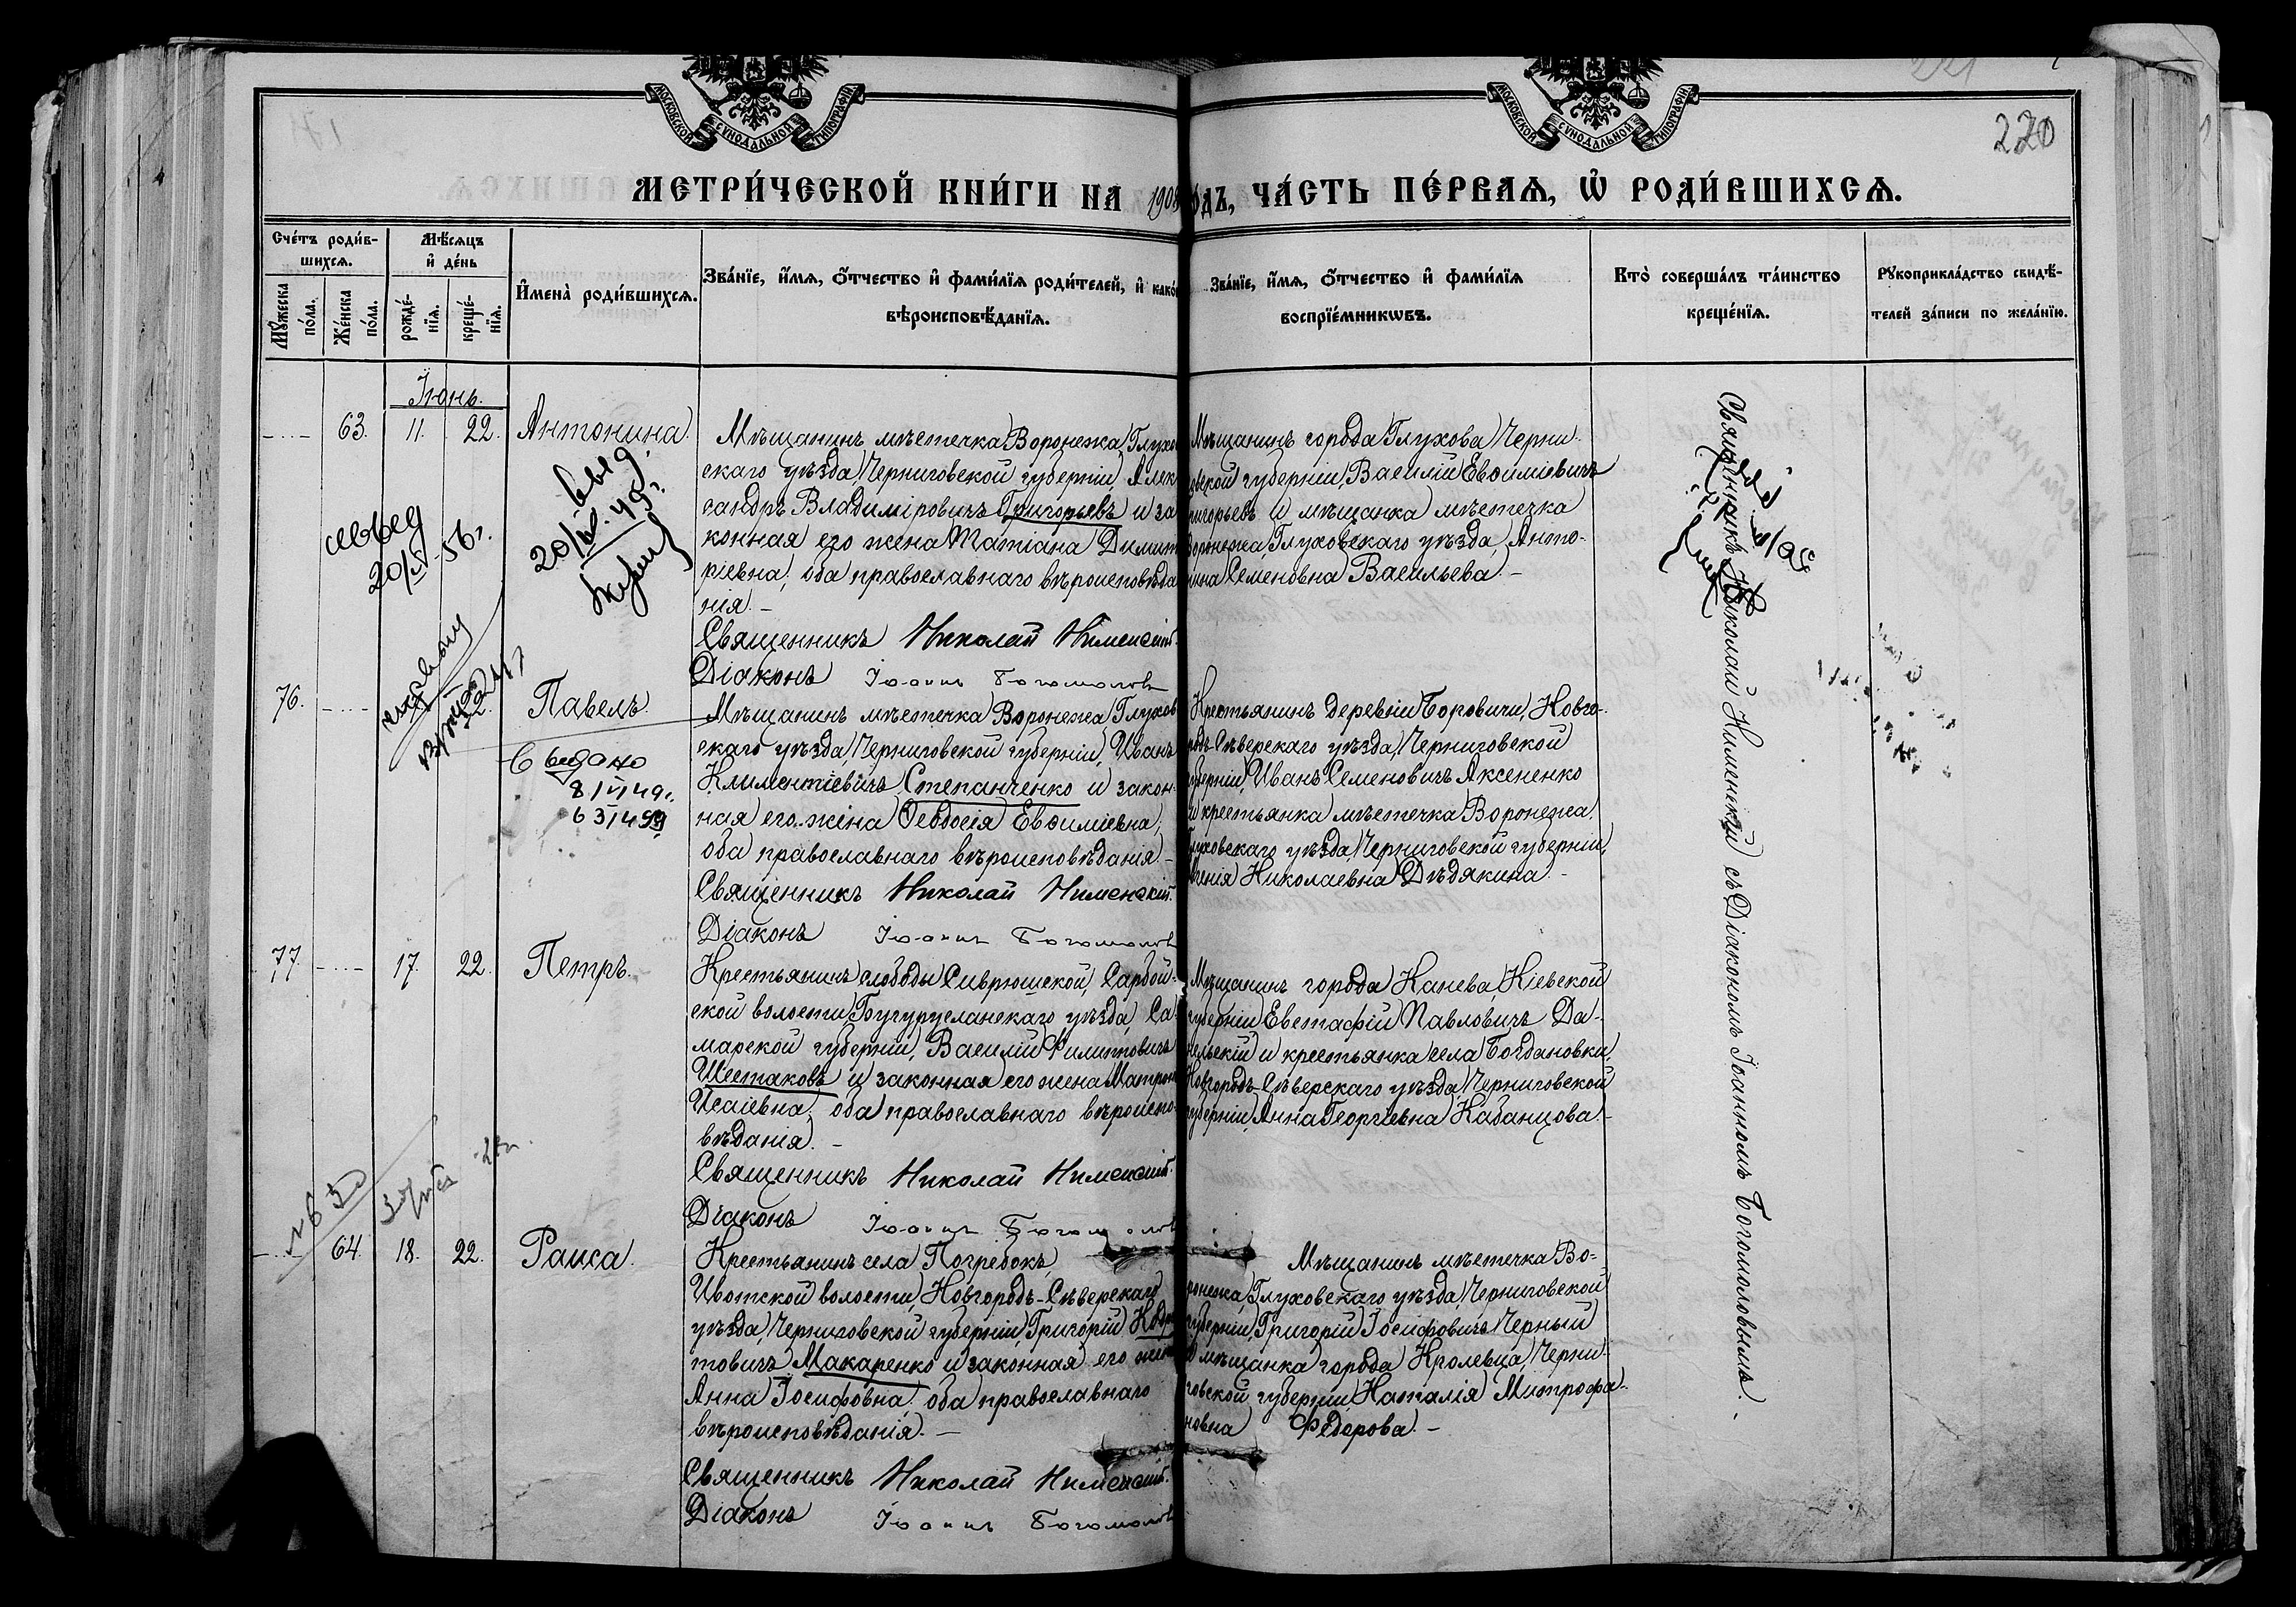 МОСКОВСКОЙ СѴНОДАЛЬНОЙ ТИПОГРАФІИ
МОСКОВСКОЙ СѴНОДАЛЬНОЙ ТИПОГРАФІИ
221
220
МЕТРИ́ЧЕСКОЙ КНИ́ГИ НА 190
ОДЪ, ЧА́СТЬ ПЕ́РВАѦ, Ѡ҆ РОДИ́ВШИХСѦ.
Сче́тъ роди́в-
шихсѧ.
Мꙋ́жеска по́ла.
Же́нска по́ла.
Мѣ́сѧцъ
и҆ де́нь
рожде́-
нїѧ.
креще́-
нїѧ.
И҆мена̀ роди́вшихсѧ.
Зва́нїе, и҆́мѧ, ѻ҆́тчество и҆ фами́лїѧ роди́телей, и҆ како́
вѣроисповѣ́данїѧ.
Зва́нїе, и҆́мѧ, ѻ҆́тчество и҆ фами́лїѧ
воспрїе́мникѡвъ.
Кто̀ соверша́лъ та́инство
креще́нїѧ.
Рꙋкоприкла́дство свидѣ́-
телей за́писи по жела́нїю.
Іюнь.
63. 11. 22. Антонина.
Мѣщанинъ мѣстечка Воронежа, Глухов
скаго уѣзда, Черниговской губерніи, Алек
сандръ Владиміровичъ Григорьевъ и за
конная его жена Татіана Димит
ріевна, оба православнаго вѣроисповѣда
нія. –
Священникъ Николай Нименскій.
Діаконъ Іоаннъ Богомолов
Мѣщанинъ города Глухова, Черни-
овской губерніи, Василій Евѳиміевичъ
ригорьевъ и мѣщанка мѣстечка
Воронежа, Глуховскаго уѣзда, Анто-
нина Семеновна Васильева. –
20/IV-56г.
20/IV.49г.
76. 22. Павелъ.
Выдано
Мѣщанинъ мѣстечка Воронежа, Глухов
скаго уѣзда, Черниговской губерніи, Иванъ
Климентіевичъ Степанченко и закон-
ная его жена Ѳеодосія Евѳиміевна,
оба православнаго вѣроисповѣданія. –
Священникъ Николай Нименскій.
Діаконъ Іоаннъ Богомолов
Крестьянинъ деревни Боровичи, Новго-
родъ-Сѣверскаго уѣзда, Черниговской
губерніи, Иванъ Семеновичъ Аксененко
и крестьянка мѣстечка Воронежа,
Глуховскаго уѣзда, Черниговской губерніи,
генія Николаевна Дѣдякина. –
77. 17. 22. Петръ.
Крестьянинъ слободы Сиврюшской, Сарбай-
ской волости, Бугурусланскаго уѣзда, Са
марской губерніи, Василій Филипповичъ
Шестаковъ и законная его жена Матрона
Исаіевна, оба православнаго вѣроиспо-
вѣданія. –
Священникъ Николай Нименскій.
Діаконъ Іоаннъ Богомолов
Мѣщанинъ города Канева, Кіевской
губерніи, Евстафій Павловичъ Да-
нельскій и крестьянка села Богдановки,
Новгородъ-Сѣверскаго уѣзда, Черниговской
губерніи, Анна Георгіевна Кабанцова. –
64. 18. 22. Раиса.
Крестьянинъ села Погребокъ,
Ивотской волости, Новгородъ-Сѣверскаго
уѣзда, Черниговской губерніи, Григорій Кодра
товичъ Макаренко и законная его жена
Анна Іосифовна, оба православнаго
вѣроисповѣданія. –
Священникъ Николай Нименскій.
Діаконъ Іоаннъ Богомолов
Мѣщанинъ мѣстечка Во-
ронежа, Глуховскаго уѣзда, Черниговской
губерніи, Григорій Іосифовичъ Черный
и мѣщанка города Кролевца, Черни-
говской губерніи, Наталія Митрофа-
новна Федорова. –
Священникъ Николай Нименскій съ Діакономъ Іоанномъ Богомоловымъ.